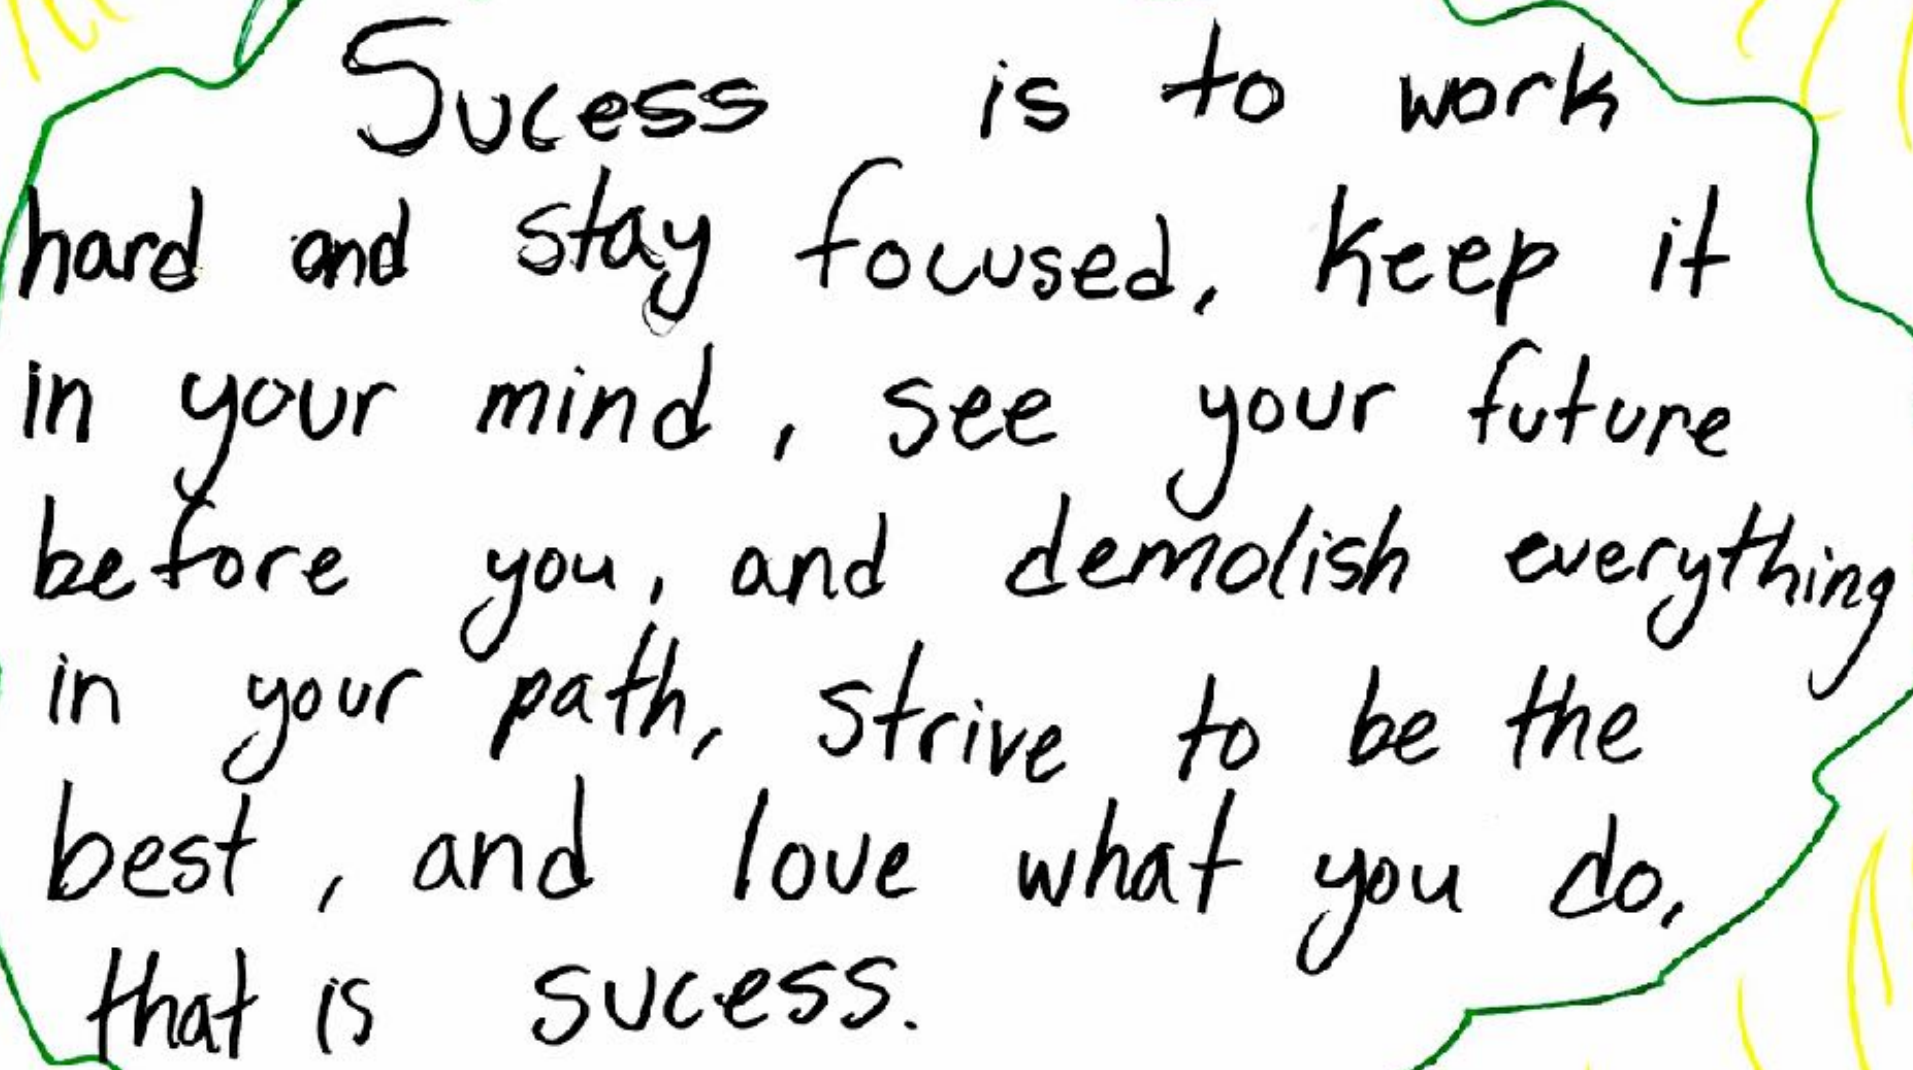 Sucess is to work
hard and stay focused, keep it
in your mind, see your future
before you, and demolish everything
in your path, strive to be the
best, and love what you do,
that is sucess.